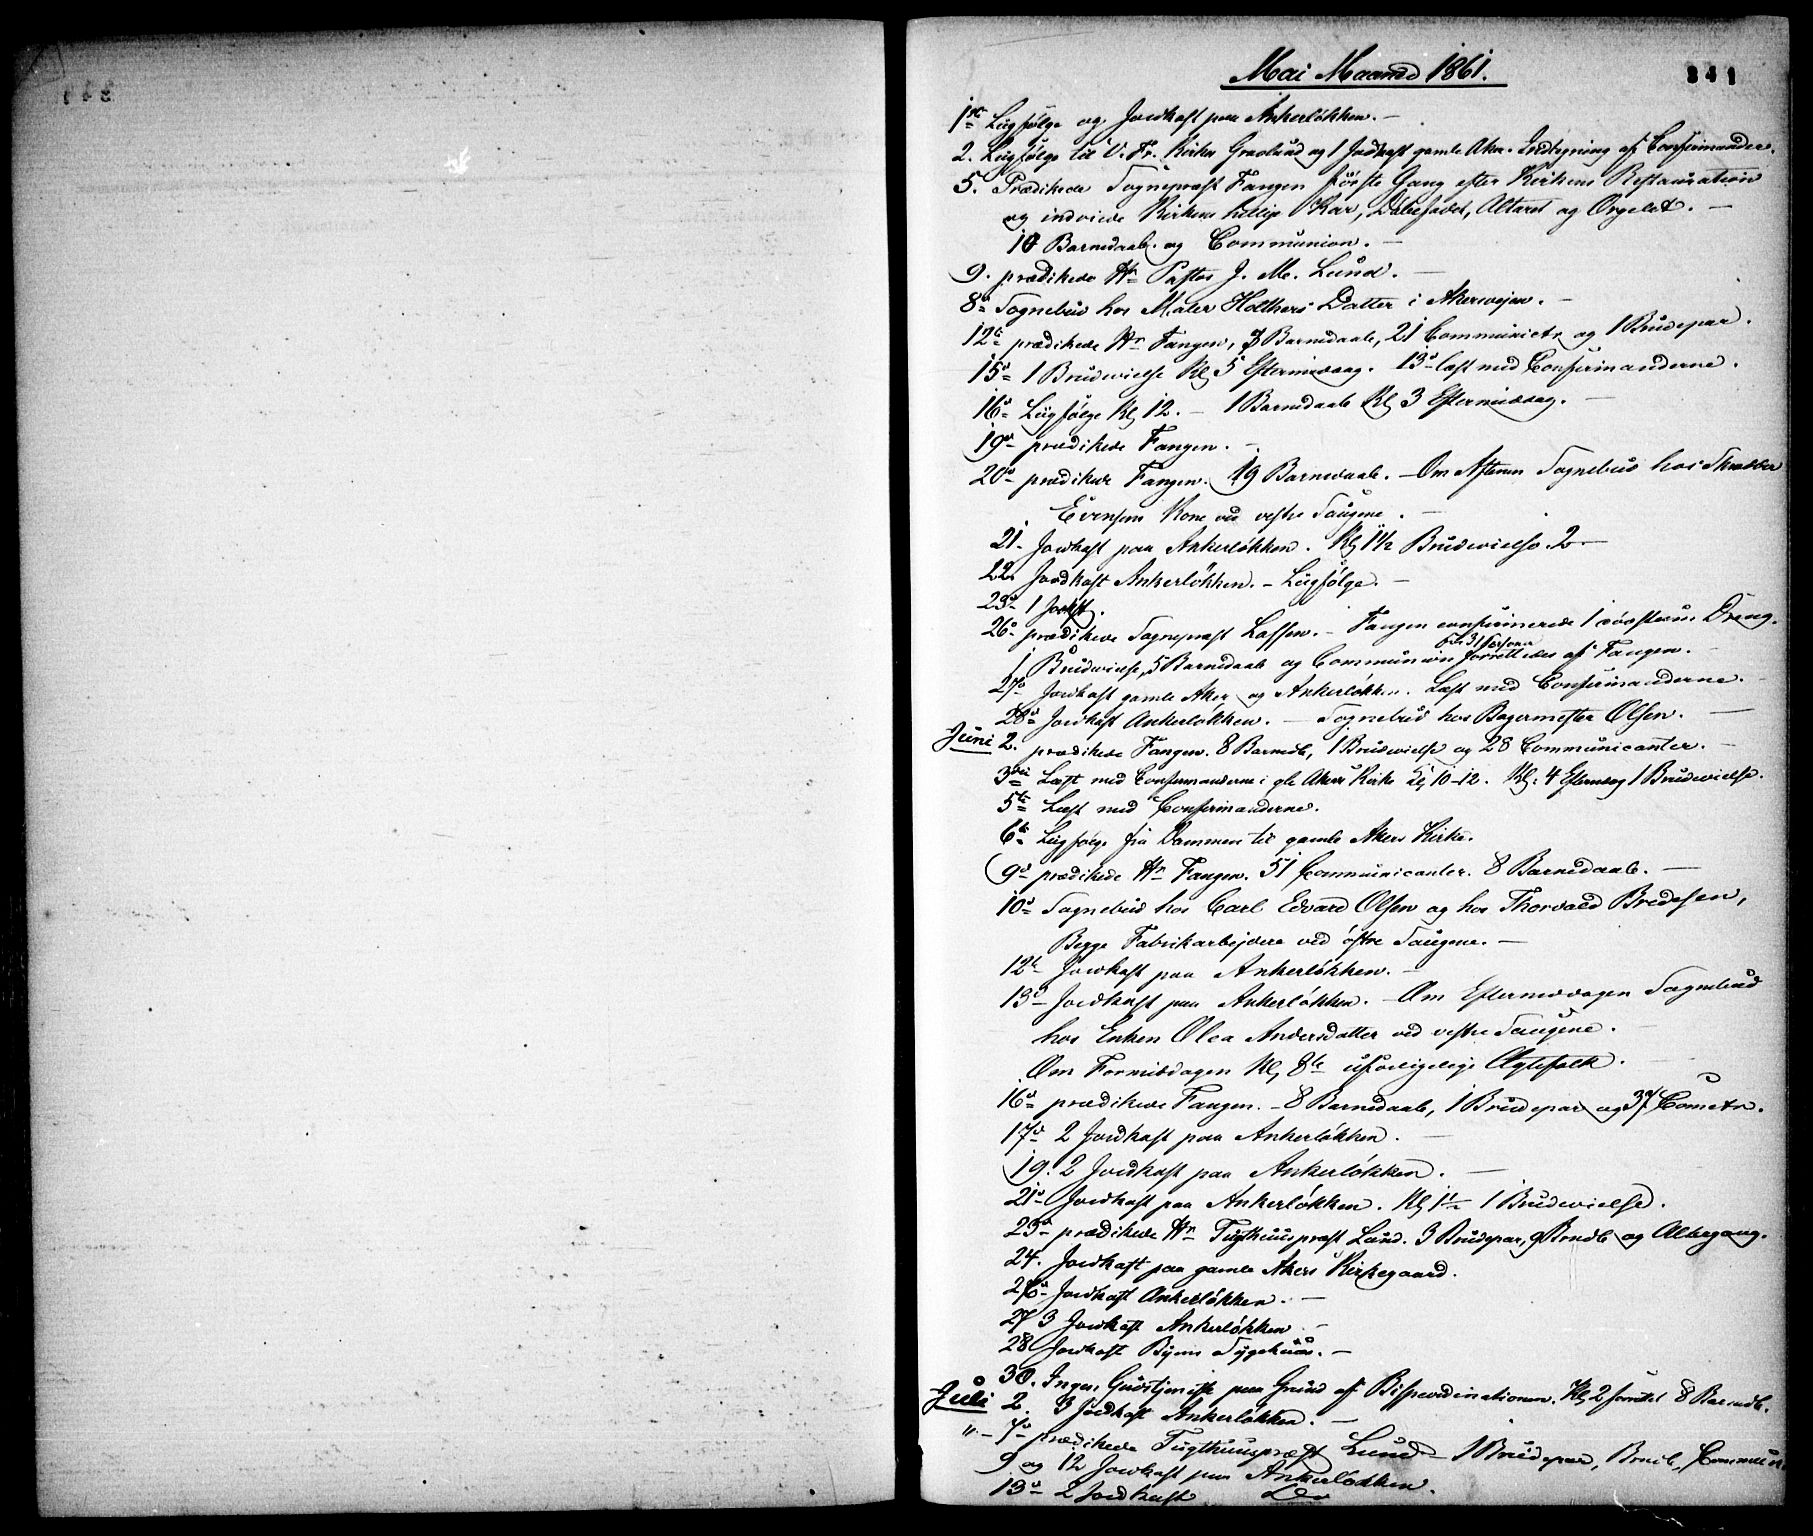 Mai Maaned 1861.
341
1ste Liigfølge og Jordkast paa Ankerløkken. —
2. Liigfølge til V. Fr. Kirkes Gravlund og 1 Jordkast gamle Aker. Indtegning af Confirmander.
5. Prædikede Sognepræst Fangen første Gang efter Kirkens Restauration
og indviede Kirkens hellige Kar, Døbefadet, Altaret og Orgelet. —
10 Barnedaab. og Communion. —
9. prædikede Hr Pastor J. M. Lund. —
8de Sognebud hos Maler Holthers Datter i Akersvejen. —
12te prædikede Hr Fangen, 7 Barnedaab, 21 Communicatr og 1 Brudepar.
15de 1 Brudevielse Kl 5 Eftermiddag. 13de læst med Confirmanderne.
16de Liigfølge Kl 12. — 1 Barnedaab Kl 3 Eftermiddag. —
19de prædikede Fangen. —
20de prædikede Fangen. 19 Barnedaab. — Om Aftenen Sognebud hos Skrædder
Evensens Kone ved vestre Saugene. —
21. Jordkast paa Ankerløkken. Kl 1 1/2 Brudevielse 2 —
22. Jordkast Ankerløkken. — Liigfølge. —
23de 1 Jordkst.
26de prædikede Sognepræst Lassen. — Fangen confirmerede 1 døvstum Dreng.
1 Brudevielse, 5 Barnedaab og Communion for 31 Personer forrettedes af Fangen. —
27de Jordkast gamle Aker og Ankerløkken. Læst med Confirmanderne. —
28de Jordkast Ankerløkken. — Sognebud hos Bagermester Olsen. —
Juni 2. prædikede Fangen. 8 Barnedb, 1 Brudevielse og 28 Communicanter. —
3die Læst med Confirmanderne i gle Akers Kirke Kl 10–12. Kl. 4 Efterm 1 Brudevielse.
5te Læst med Confirmanderne.
6te Liigfølge fra Dammen til gamle Akers Kirke.
9de prædikede Hr Fangen. 51 Communicanter. 8 Barnedaab. —
10de Sognebud hos Carl Edvard Olsen og hos Thorvald Bredesen,
Begge Fabrikarbejdere ved østre Saugene. —
12te Jordkast paa Ankerløkken. —
13de Jordkast paa Ankerløkken. — Om Eftermiddagen Sognebud
hos Enken Olea Andersdatter ved vestre Saugene.
Om Formiddagen Kl 8te uforligelige Ægtefolk.
16de prædikede Fangen. — 8 Barnedaab, 1 Brudepar og 37 Cometr.
17de 2 Jordkast paa Ankerløkken. —
19. 2 Jordkast paa Ankerløkken. —
21de Jordkast paa Ankerløkken. Kl 1 1/2 1 Brudevielse.
23de prædikede Hr Tugthuuspræst Lund. 3 Brudepar, 9 Brndb og Altergang.
24. Jordkast paa gamle Akers Kirkegaard.
26de Jordkast Ankerløkken. —
27 3 Jordkast Ankerløkken —
28 Jordkast Byens Sygehuus. —
30. Ingen Gudstjeneste paa Grund af Bispeordinationen. Kl 2 forrettet 8 Barnedb.
Juli 2. 3 Jordkast Ankerløkken. —
" — 7de prædikede Tugthuuspræst Lund — 1 Brudepar, Brndb, Commun
9 og 12 Jordkast paa Ankerløkken.
13de 2 Jordkast Do